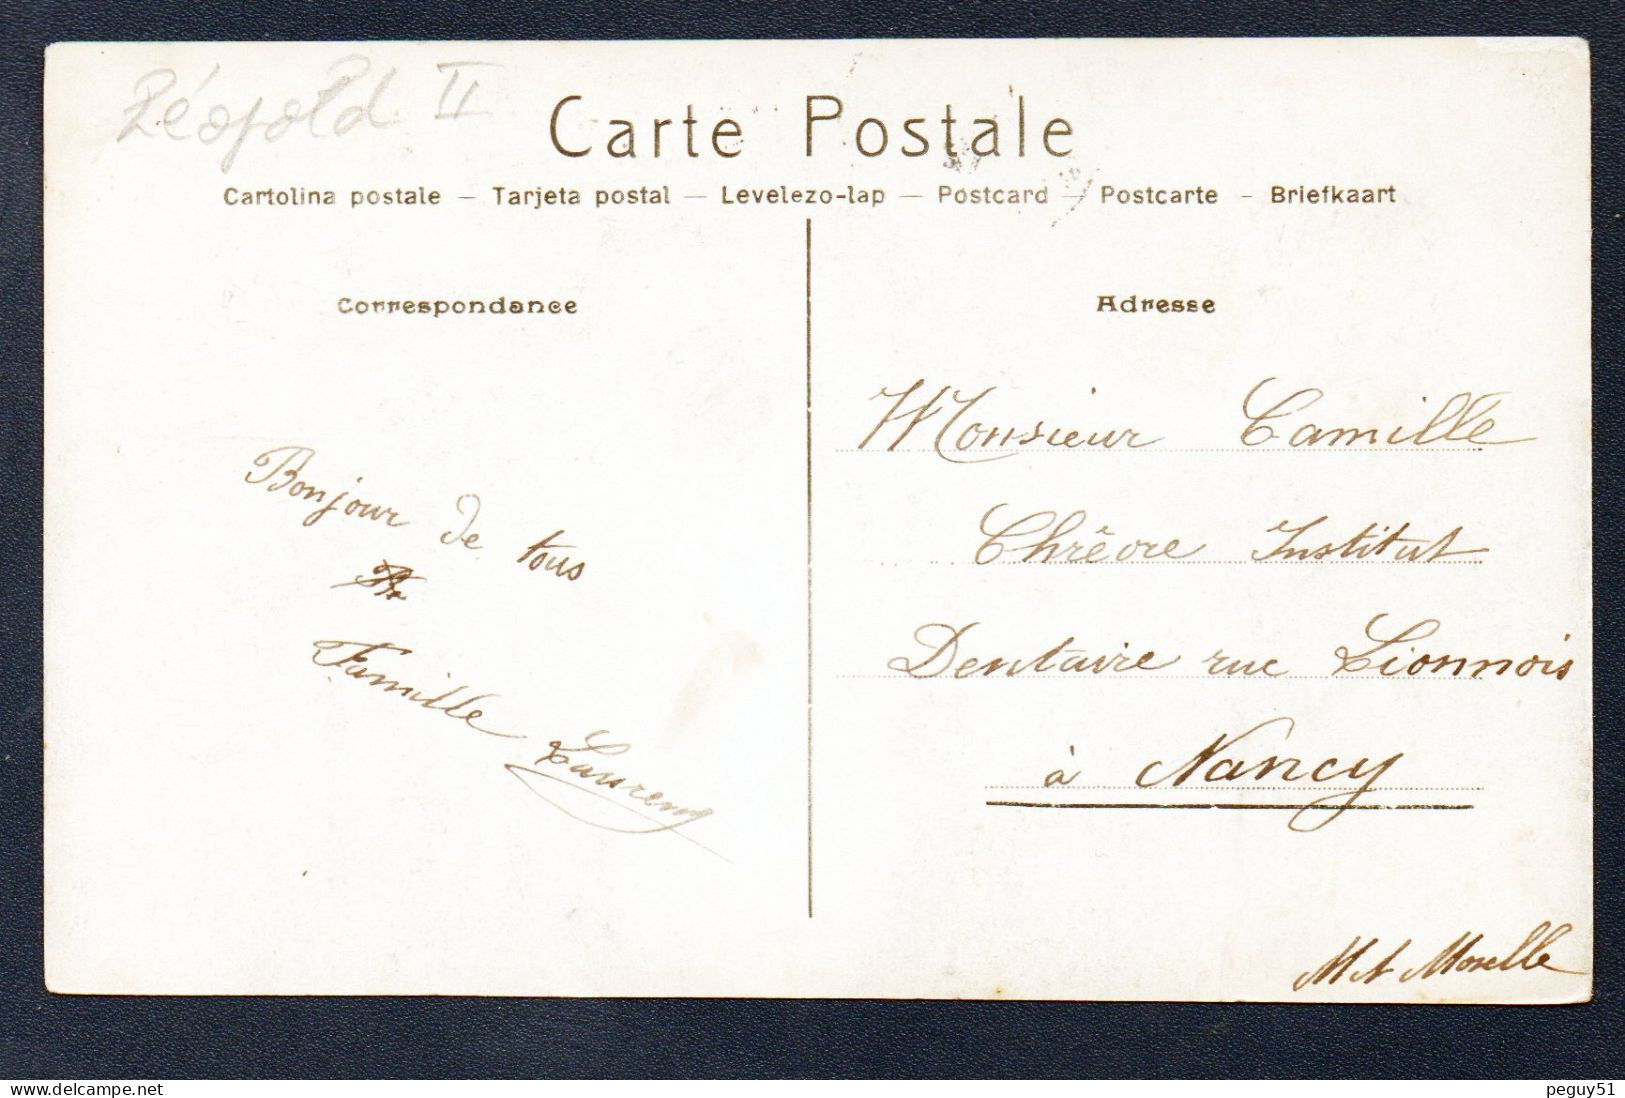 Léopold II
Carte Postale
Cartolina postale – Tarjeta postal – Levelezo-lap – Postcard – Postcarte – Briefkaart
Correspondance
Adresse
Bonjour de tous
Famille
Monsieur Camille
Chrêvre Institut
Dentaire rue Lionnois
à Nancy
Mt Moselle
delcampe.net
peguy51